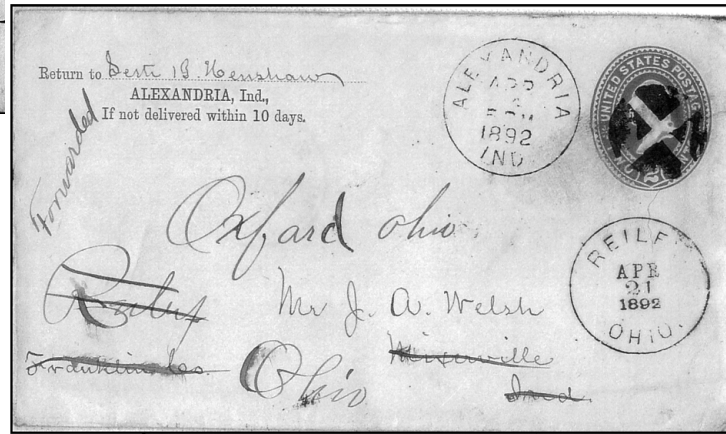 Return to Bert B. Henshaw
ALEXANDRIA, Ind.,
If not delivered within 10 days.
Forwarded
ALEXANDRIA
APR
2
5 PM
1892
IND.
UNITED STATES POSTAGE
TWO
2
REILEY
APR
21
1892
OHIO.
Oxford Ohio
Reiley Mr J. A. Welsh
Franklin Co. Mixerville
Ohio Ind.